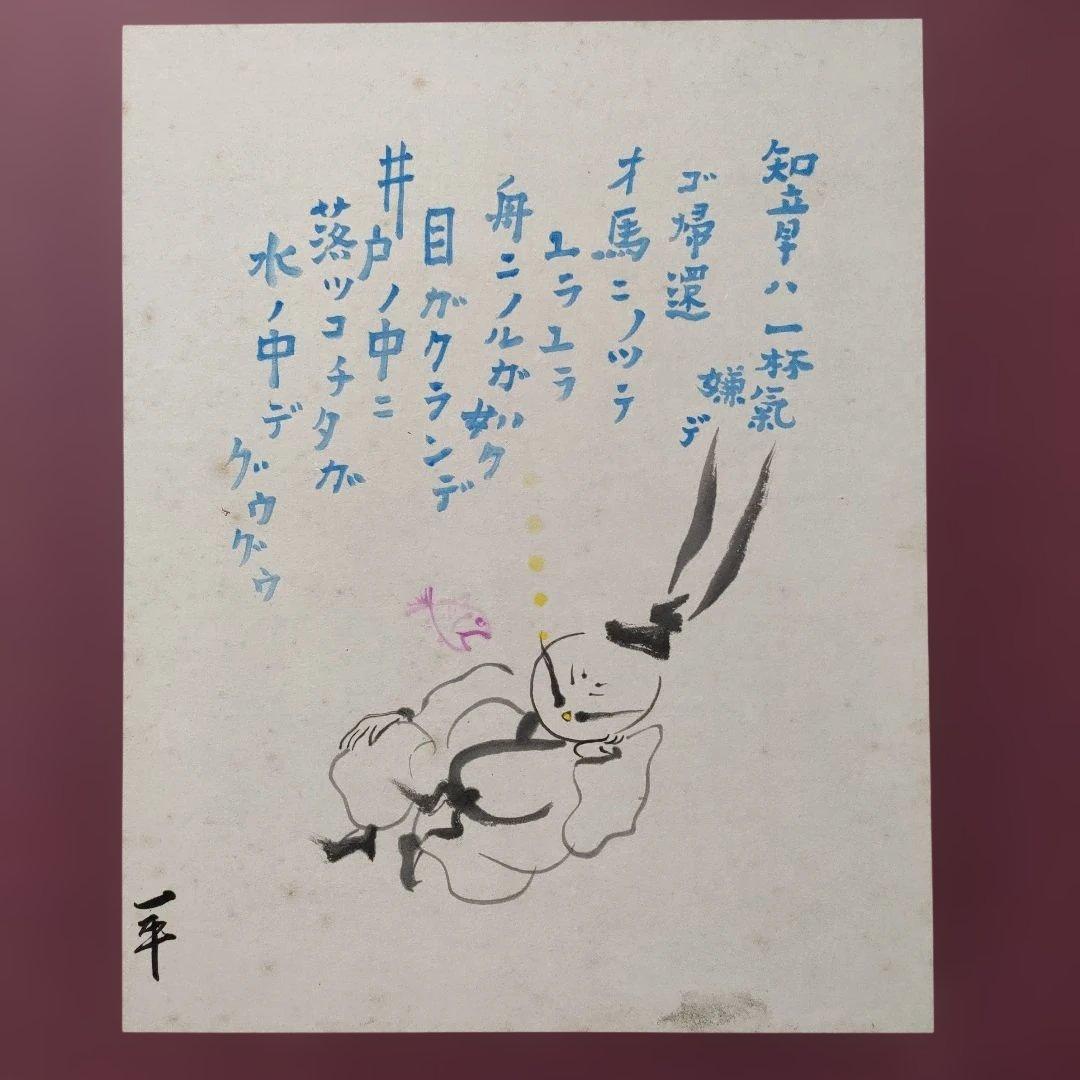 知章ハ一杯氣
嫌デ
ゴ帰還
オ馬ニノツテ
ユラユラ
舟ニノルガ如ク
目ガクランデ
井戸ノ中ニ
落ツコチタガ
水ノ中デ
グウグウ
一平